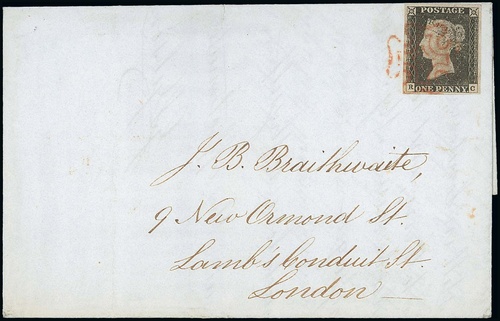 POSTAGE
K C
ONE PENNY
J. B. Braithwaite,
9 New Ormond St.
Lamb's Conduit St.
London